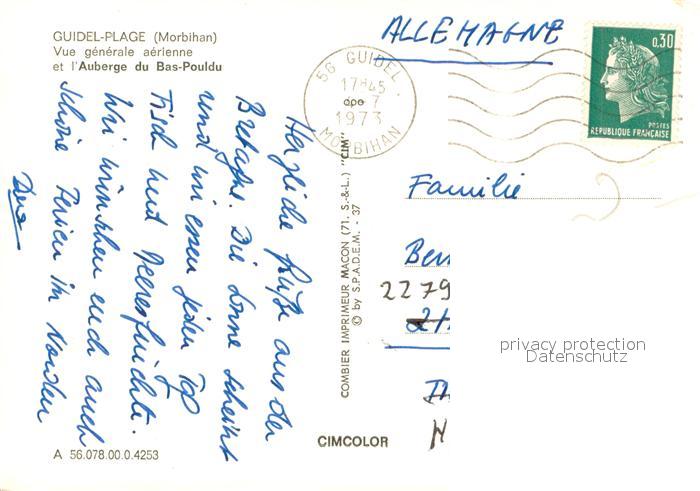 GUIDEL-PLAGE (Morbihan)
Vue générale aérienne
et l'Auberge du Bas-Pouldu
Herzliche Grüße aus der
Bretagne. Die Sonne scheint
und wir essen jeden Tag
Fisch und Meeresfrüchte.
Wir wünschen euch auch
schöne Ferien im Norden
A 56.078.00.0.4253
COMBIER IMPRIMEUR MACON (71. S.-&-L.) "CIM"
© by S.P.A.D.E.M. - 37
CIMCOLOR
ALLEMAGNE
56 GUIDEL
17H45
7
1973
MORBIHAN
0,30
POSTES
REPUBLIQUE FRANÇAISE
Familie
Ben
2279
21
Th
privacy protection
Datenschutz